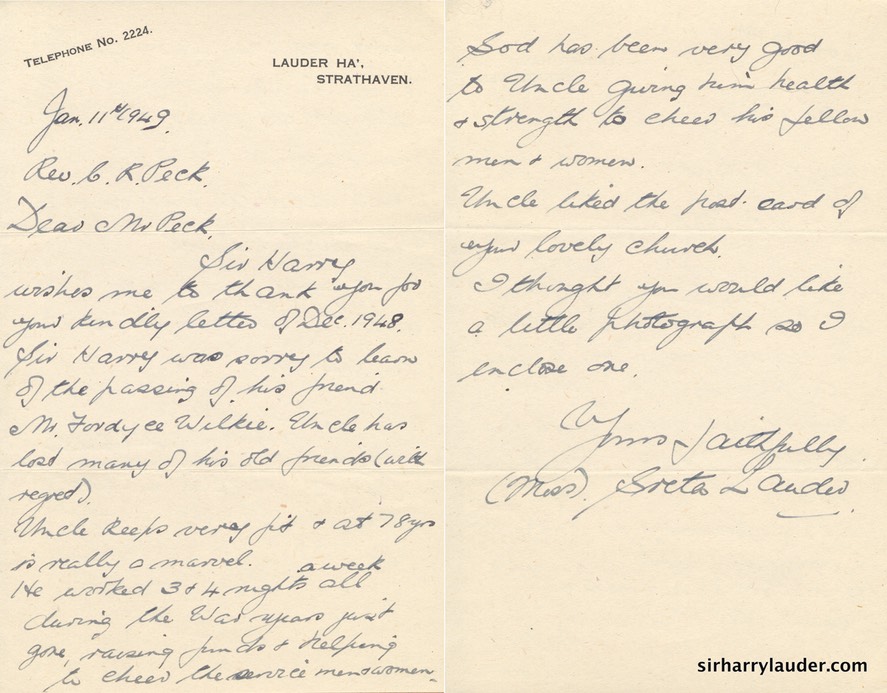 TELEPHONE NO. 2224.
LAUDER HA',
STRATHAVEN.
Jan. 11th 1949.
Rev. C. R. Peck.
Dear Mr Peck,
Sir Harry
wishes me to thank you for
your kindly letter of Dec. 1948.
Sir Harry was sorry to learn
of the passing of his friend
Mr. Fordyce Wilkie. Uncle has
lost many of his old friends (with
regret).
Uncle keeps very fit & at 78 yrs
is really a marvel.
a week
He worked 3 & 4 nights all
during the War years just
gone, raising funds & helping
to cheer the service men & women.
God has been very good
to Uncle giving him health
& strength to cheer his fellow
men & women.
Uncle liked the post-card of
your lovely church.
I thought you would like
a little photograph so I
enclose one.
Yours faithfully
(Miss). Greta Lauder.
sirharrylauder.com